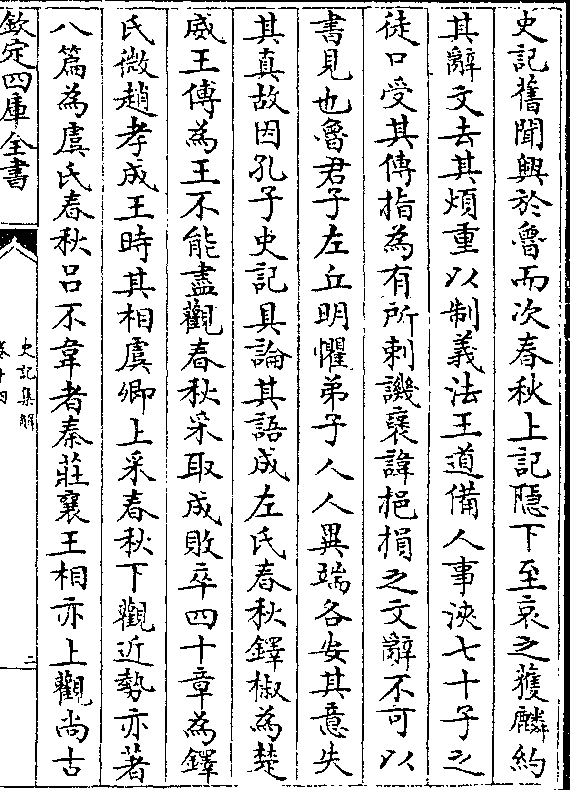 史記舊聞興於魯而次春秋上記隠下至哀之獲麟約
其辭文去其煩重以制義法王道備人事浹七十子之
徒口受其傳指為有所刺譏襃諱挹損之文辭不可以
書見也魯君子左丘明懼弟子人人異端各安其意失
其真故因孔子史記具論其語成左氏春秋鐸椒為楚
威王傅為王不能盡觀春秋采取成敗卒四十章為鐸
氏微趙孝成王時其相虞卿上采春秋下觀近勢亦著
八篇為虞氏春秋吕不韋者秦莊襄王相亦上觀尚古
欽定四庫全書
史記集解
卷十四
二